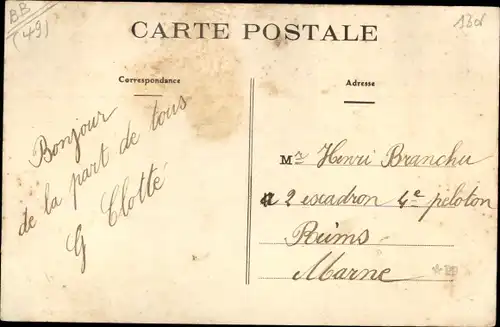 BB
(49)
CARTE POSTALE
Correspondance
Adresse
Bonjour
de la part de tous
G Clotté
Mr Henri Branchu
2 escadron 4e peloton
Reims
Marne